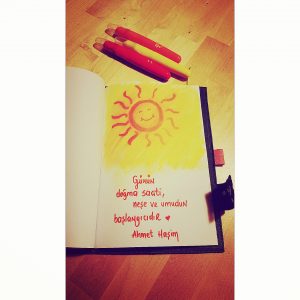 Günün
doğma saati,
neşe ve umudun
başlangıcıdır
Ahmet Haşim